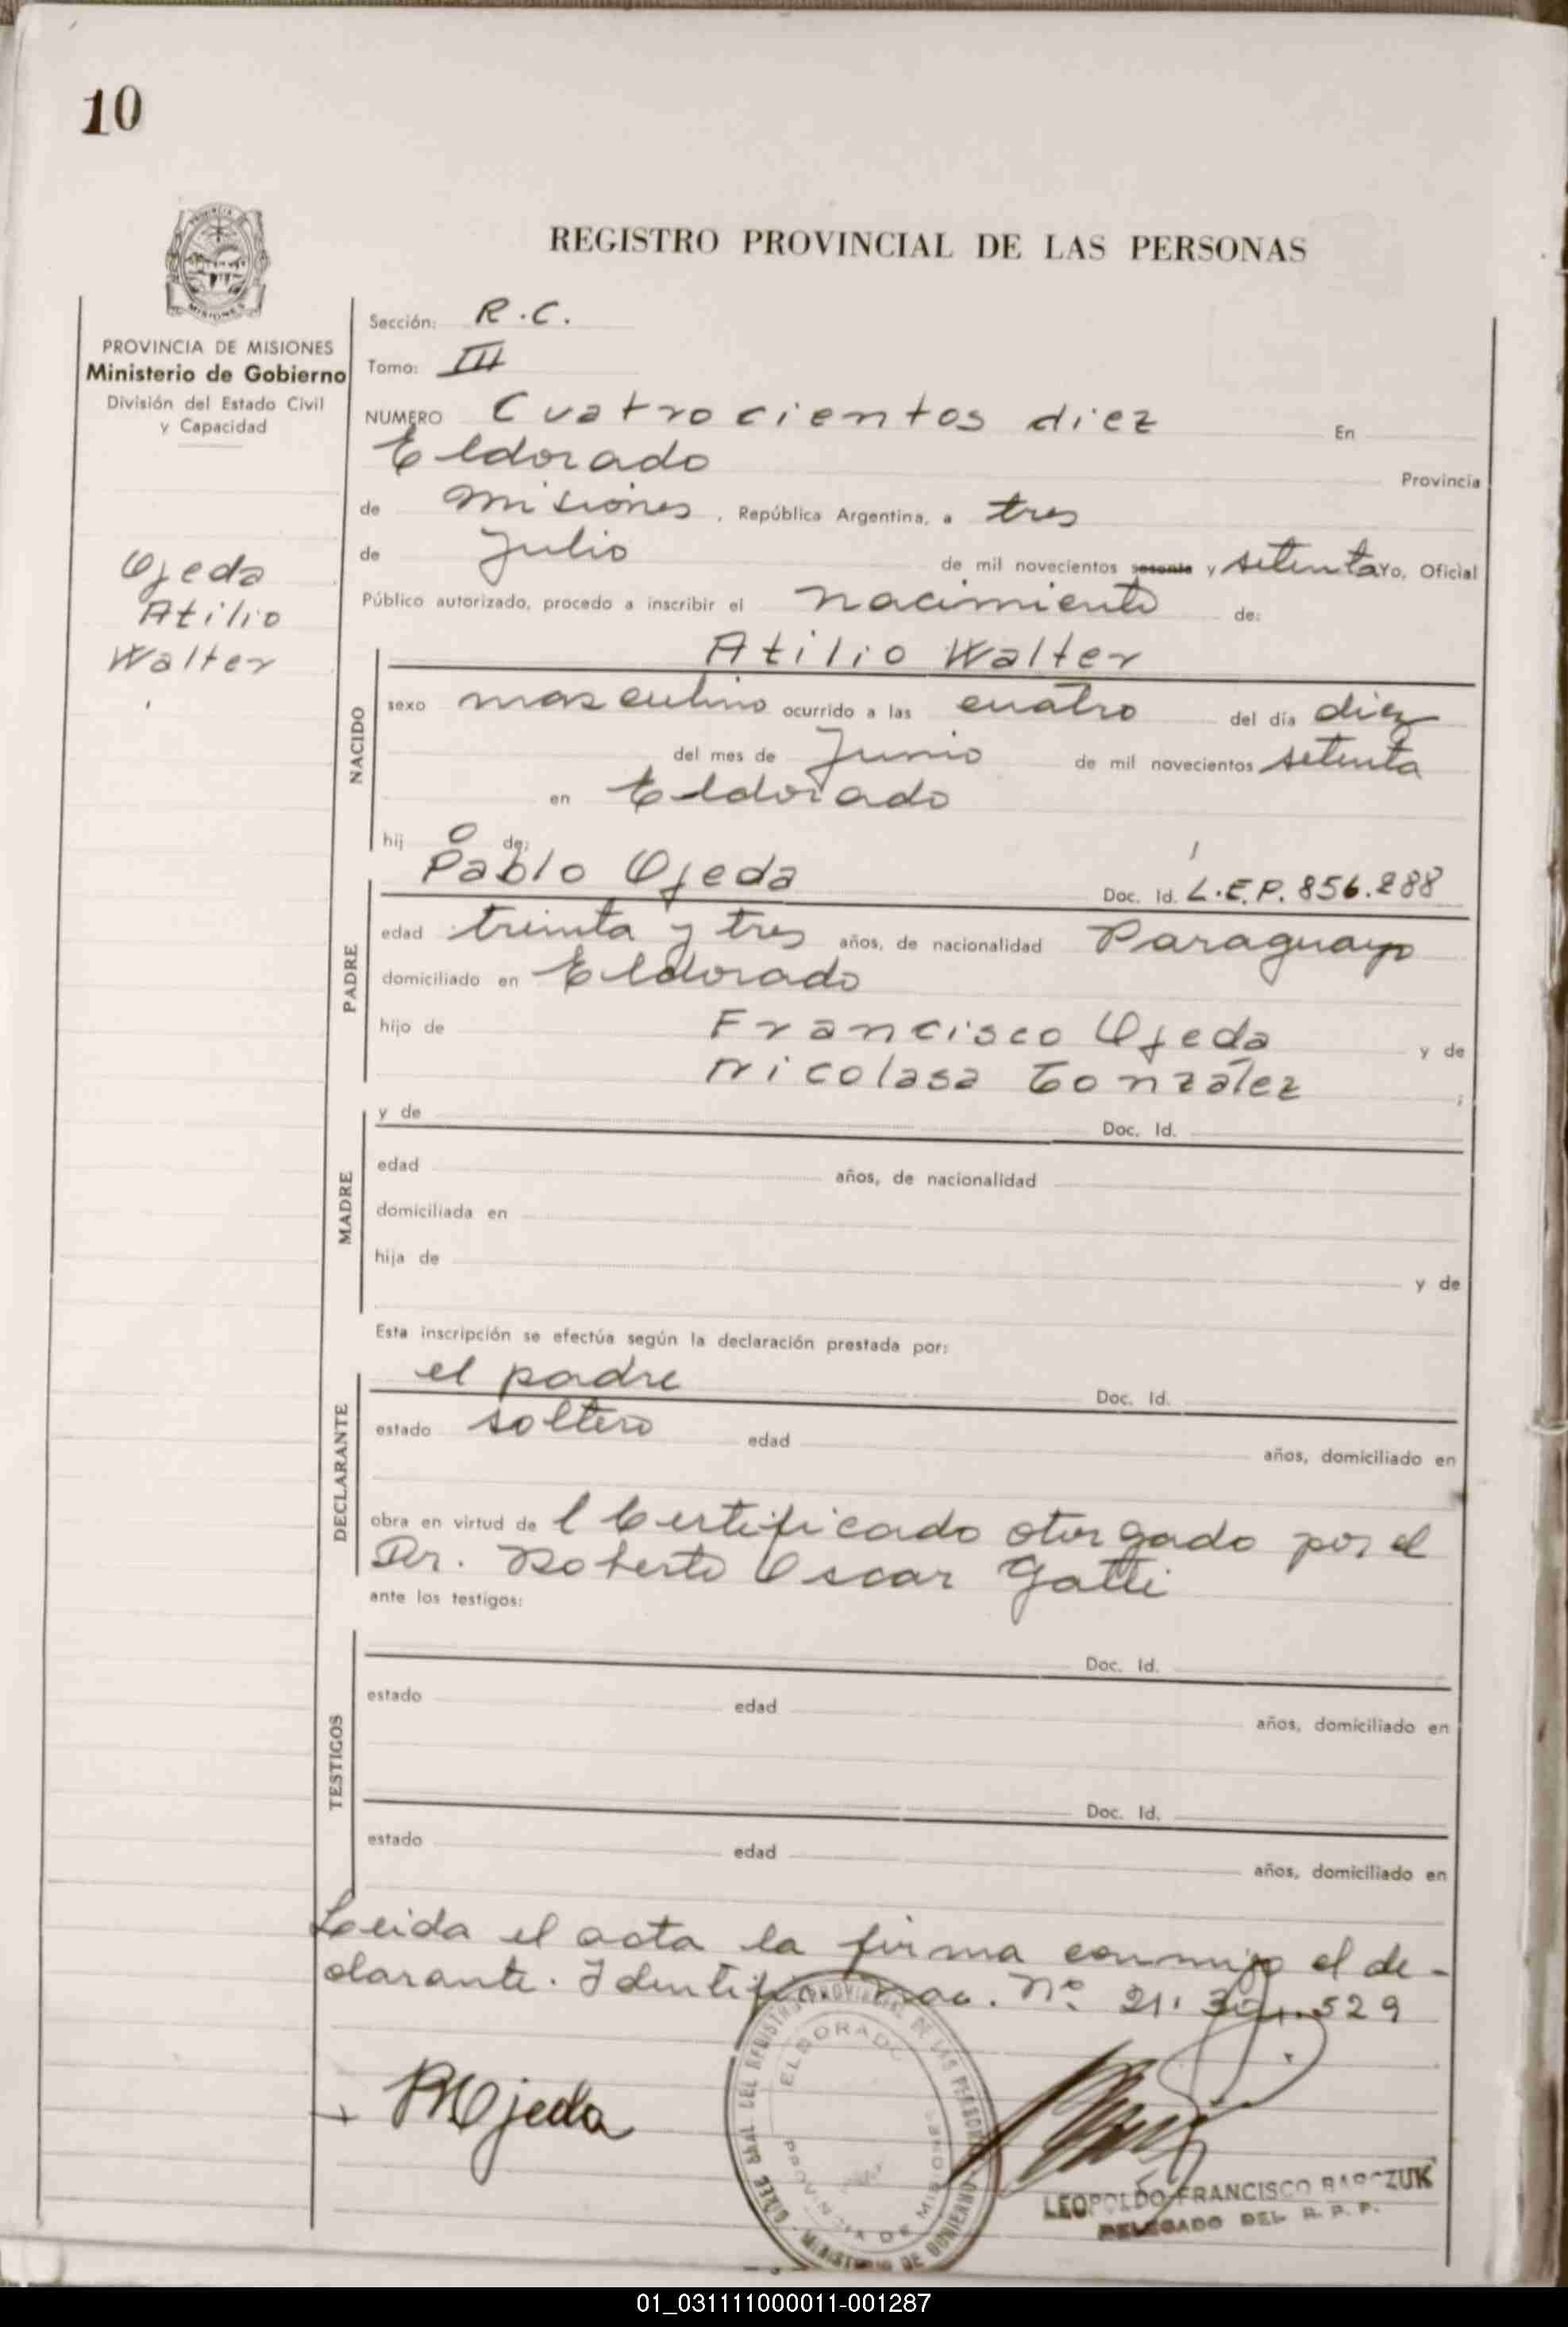 10
REGISTRO PROVINCIAL DE LAS PERSONAS
PROVINCIA DE MISIONES
Ministerio de Gobierno
División del Estado Civil
y Capacidad
Ojeda
Atilio
Walter
Sección: R.C.
Tomo: III
NUMERO Cuatrocientos diez En
Eldorado Provincia
de Misiones, República Argentina, a tres
de Julio de mil novecientos sesenta y setenta Yo, Oficial
Público autorizado, procedo a inscribir el nacimiento de:
NACIDO
Atilio Walter
sexo masculino ocurrido a las cuatro del día diez
del mes de Junio de mil novecientos setenta
en Eldorado
hijo de:
PADRE
Pablo Ojeda Doc. Id. L.E.P. 856.288
edad treinta y tres años, de nacionalidad Paraguayo
domiciliado en Eldorado
hijo de Francisco Ojeda y de
Nicolasa González ;
MADRE
y de Doc. Id.
edad años, de nacionalidad
domiciliada en
hija de y de
Esta inscripción se efectúa según la declaración prestada por:
DECLARANTE
el padre Doc. Id.
estado soltero edad años, domiciliado en
obra en virtud del Certificado otorgado por el
Dr. Roberto Oscar Gatti
ante los testigos:
TESTIGOS
Doc. Id.
estado edad años, domiciliado en
Doc. Id.
estado edad años, domiciliado en
Leida el acta la firma conmigo el de-
clarante. Nº 21.
529
POjeda
ELDORADO
PROVINCIA DE MISIONES
MINISTERIO DE GOBIERNO
LEOPOLDO FRANCISCO BARCZUK
DELEGADO DEL R. P. P.
01_031111000011-001287